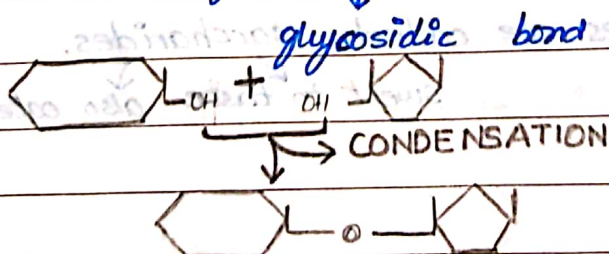 glycosidic bond
OH + OH
CONDENSATION
O